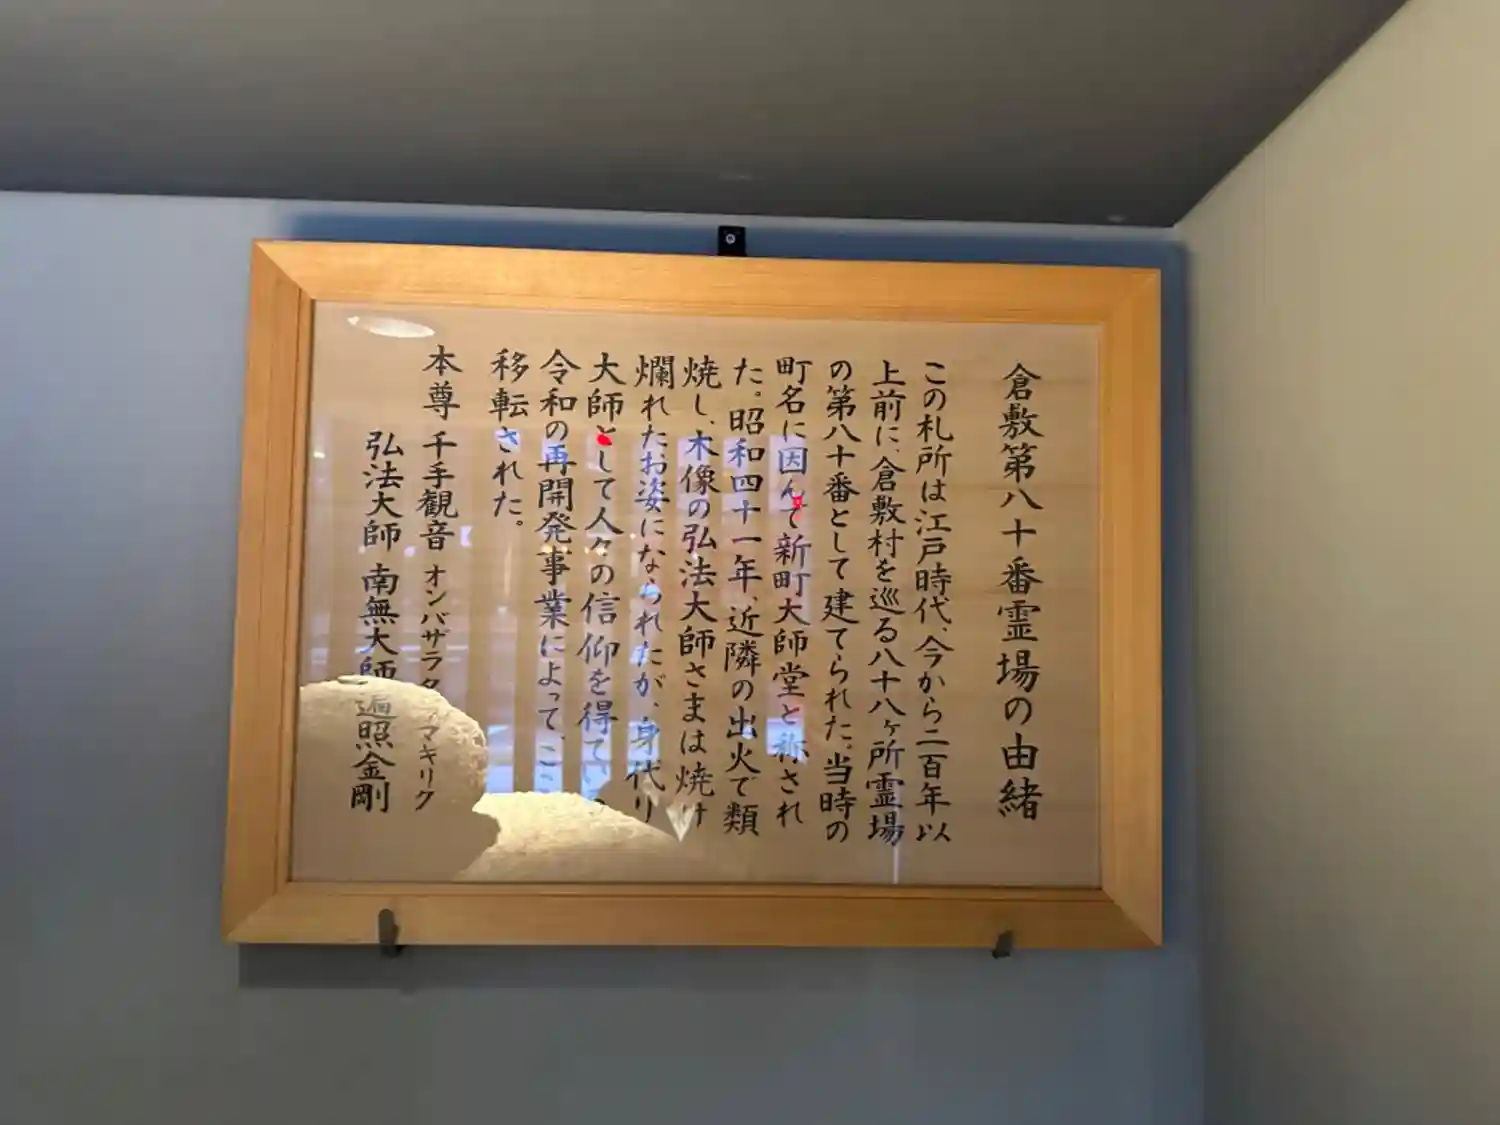 倉敷第八十番霊場の由緒
この札所は江戸時代、今から二百年以
上前に、倉敷村を巡る八十八ヶ所霊場
の第八十番として建てられた。当時の
町名に因んで新町大師堂と称され
た。昭和四十一年、近隣の出火で類
焼し、木像の弘法大師さまは焼け
爛れたお姿になられたが、身代り
大師として人々の信仰を得てい
令和の再開発事業によって、こ
移転された。
本尊 千手観音 オンバザラタ マキリグ
弘法大師 南無大師遍照金剛